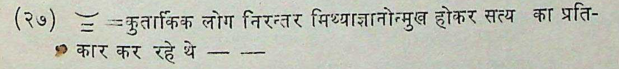 (२७) = =कुतार्किक लोग निरन्तर मिथ्याज्ञानोन्मुख होकर सत्य का प्रति-
कार कर रहे थे — —